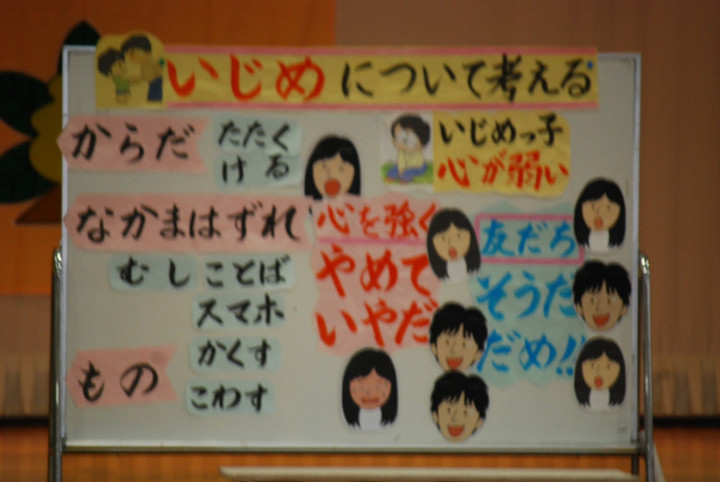 いじめについて考える
からだ
たたく
ける
なかまはずれ
むし ことば
スマホ
もの
かくす
こわす
いじめっ子
心が弱い
心を強く
やめて
いやだ
友だち
そうだ
だめ!!